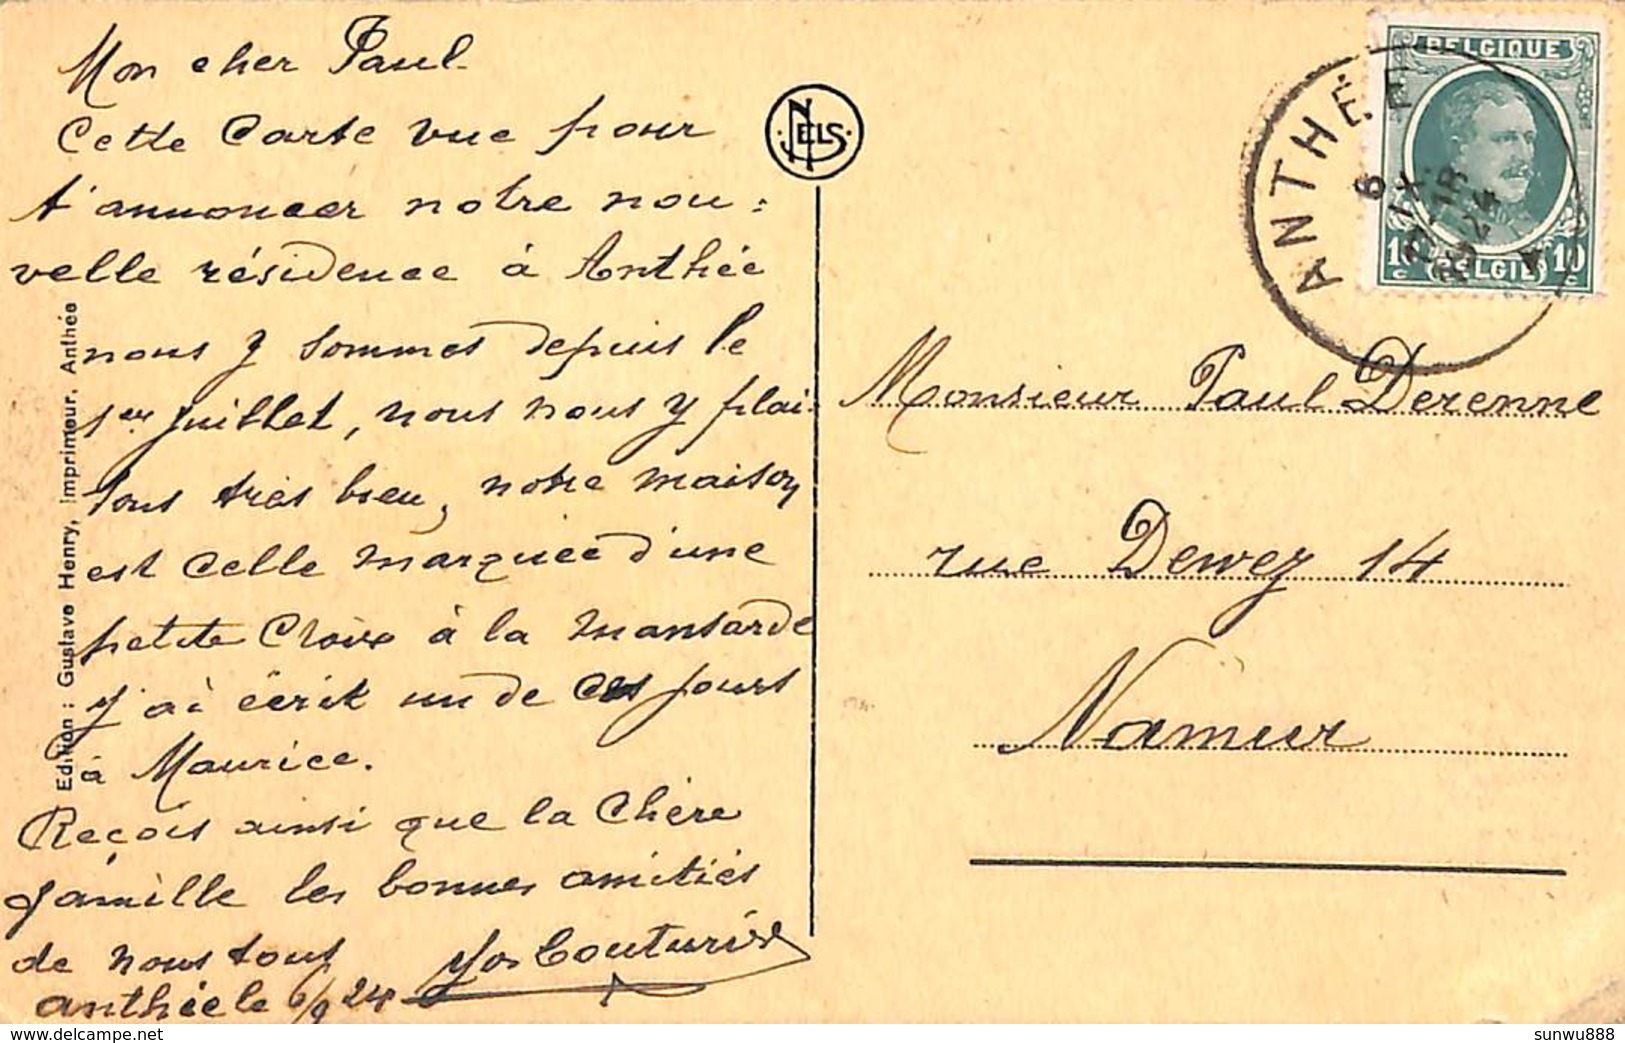 Mon cher Paul
Cette Carte vue pour
t'annoncer notre nou=
velle résidence à Anthée
nous y sommes depuis le
1er juillet, nous nous y plai-
sons très bien, notre maison
est celle marquée d'une
petite Croix à la mansarde
j'ai écrit un de ces jours
à Maurice.
Reçois ainsi que la Chère
famille les bonnes amitiés
de nous tous
Jos Couturi
Anthée le 6/9 24
Edition : Gustave Henry, Imprimeur, Anthée
NELS
BELGIQUE
10 c BELGIË 10 c
ANTHÉE
6 IX
1924
Monsieur Paul Derenne
rue Dewez 14
Namur
sunwu888